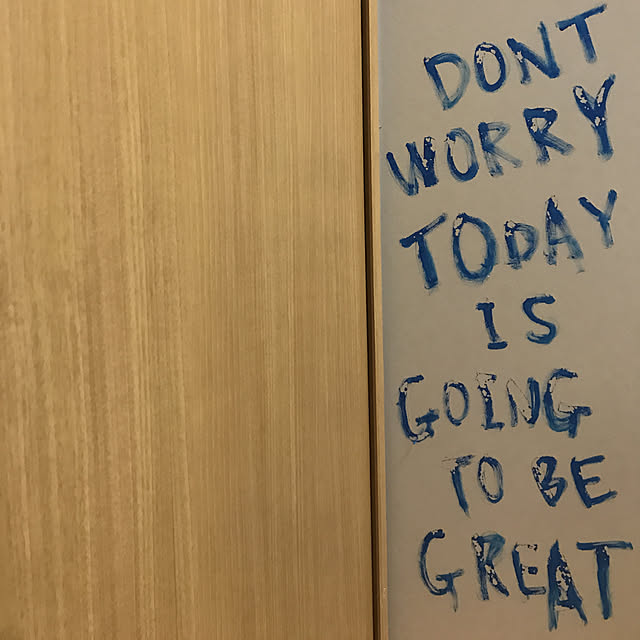 DONT
WORRY
TODAY
IS
GOING
TO BE
GREAT